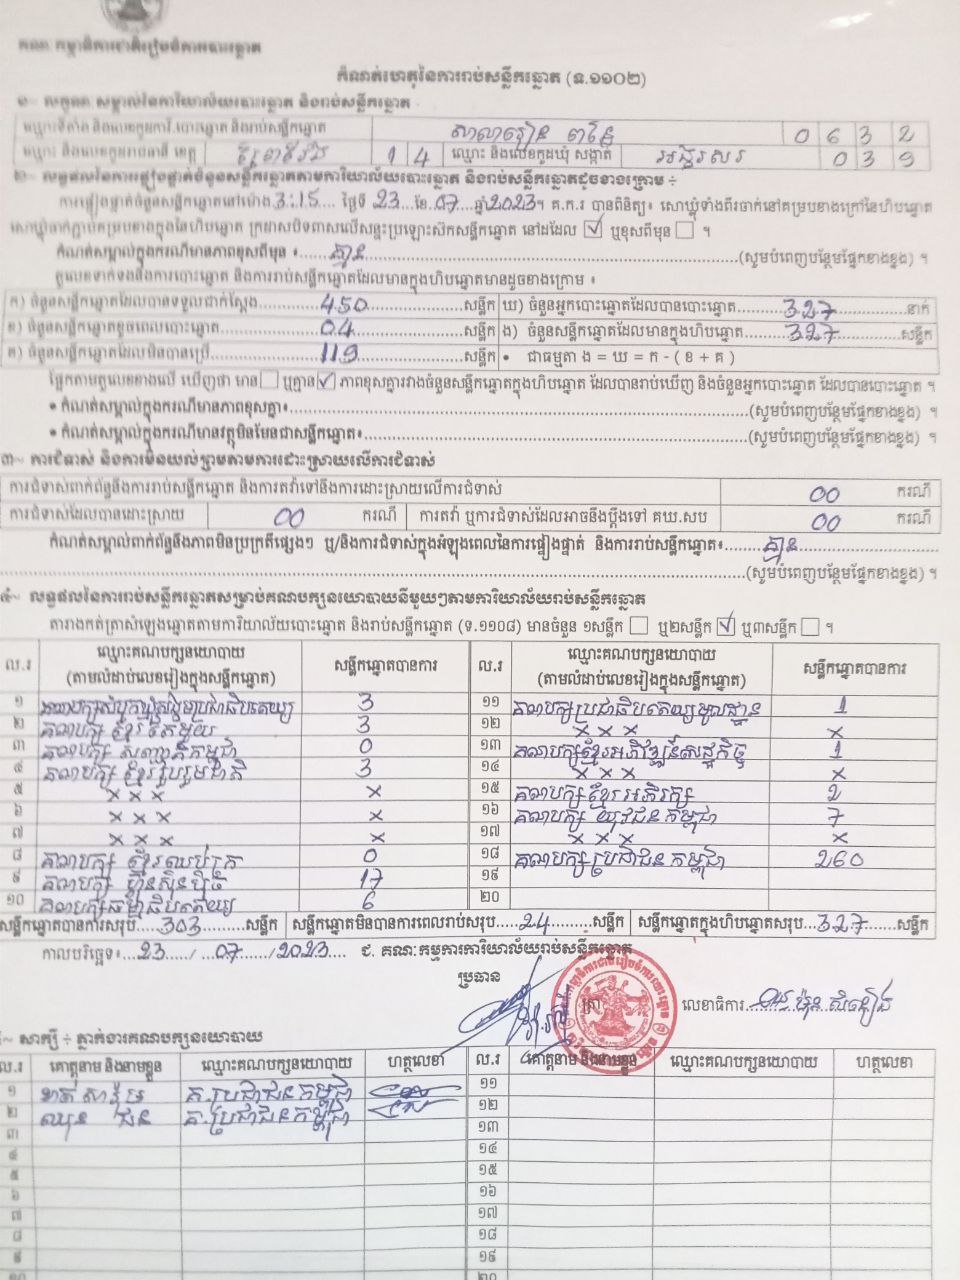 គណៈកម្មាធិការជាតិរៀបចំការបោះឆ្នោត
កំណត់ហេតុនៃការរាប់សន្លឹកឆ្នោត (ទ.១១០២)
១~ លក្ខណៈសម្គាល់នៃការិយាល័យបោះឆ្នោត និងរាប់សន្លឹកឆ្នោត
ឈ្មោះទីតាំង និងលេខកូដការិ.បោះឆ្នោត និងរាប់សន្លឹកឆ្នោត សាលារៀន 0 6 3 2
ឈ្មោះ និងលេខកូដរាជធានី ខេត្ត ព្រៃវែង 1 4 ឈ្មោះ និងលេខកូដឃុំ សង្កាត់ អង្គរសរ 0 3 9
២~ លទ្ធផលនៃការផ្ទៀងផ្ទាត់ចំនួនសន្លឹកឆ្នោតតាមការិយាល័យបោះឆ្នោត និងរាប់សន្លឹកឆ្នោតដូចខាងក្រោម ÷
ការផ្ទៀងផ្ទាត់ចំនួនសន្លឹកឆ្នោតនៅម៉ោង 3:15 ថ្ងៃទី 23 ខែ 07 ឆ្នាំ 2023។ គ.ក.រ បានពិនិត្យ៖ សោឃ្លុំទាំងពីរចាក់នៅគម្របខាងក្រៅនៃហិបឆ្នោត
សោឃ្លុំចាក់ភ្ជាប់គម្របខាងក្នុងនៃហិបឆ្នោត ក្រដាសបិទពាសលើសន្ទះប្រឡោះស៊កសន្លឹកឆ្នោត នៅដដែល ☑ ឬខុសពីមុន ☐ ។
កំណត់សម្គាល់ក្នុងករណីមានភាពខុសពីមុន ៖ គ្មាន (សូមបំពេញបន្ថែមផ្នែកខាងខ្នង) ។
តួលេខទាក់ទងនឹងការបោះឆ្នោត និងការរាប់សន្លឹកឆ្នោតដែលមានក្នុងហិបឆ្នោតមានដូចខាងក្រោម ៖
ក) ចំនួនសន្លឹកឆ្នោតដែលបានទទួលជាក់ស្តែង 450 សន្លឹក ឃ) ចំនួនអ្នកបោះឆ្នោតដែលបានបោះឆ្នោត 327 នាក់
ខ) ចំនួនសន្លឹកឆ្នោតខូចពេលបោះឆ្នោត 04 សន្លឹក ង) ចំនួនសន្លឹកឆ្នោតដែលមានក្នុងហិបឆ្នោត 327 សន្លឹក
គ) ចំនួនសន្លឹកឆ្នោតដែលមិនបានប្រើ 119 សន្លឹក • ជាធម្មតា ង = ឃ = ក - ( ខ + គ )
ផ្អែកតាមតួលេខខាងលើ ឃើញថា មាន ☐ ឬគ្មាន ☑ ភាពខុសគ្នារវាងចំនួនសន្លឹកឆ្នោតក្នុងហិបឆ្នោត ដែលបានរាប់ឃើញ និងចំនួនអ្នកបោះឆ្នោត ដែលបានបោះឆ្នោត ។
• កំណត់សម្គាល់ក្នុងករណីមានភាពខុសគ្នា៖ (សូមបំពេញបន្ថែមផ្នែកខាងខ្នង) ។
• កំណត់សម្គាល់ក្នុងករណីមានវត្ថុមិនមែនជាសន្លឹកឆ្នោត៖ (សូមបំពេញបន្ថែមផ្នែកខាងខ្នង) ។
៣~ ការជំទាស់ និងការមិនយល់ព្រមតាមការដោះស្រាយលើការជំទាស់
ការជំទាស់ពាក់ព័ន្ធនឹងការរាប់សន្លឹកឆ្នោត និងការតវ៉ាទៅនឹងការដោះស្រាយលើការជំទាស់ 00 ករណី
ការជំទាស់ដែលបានដោះស្រាយ 00 ករណី ការតវ៉ា ឬការជំទាស់ដែលអាចនឹងប្តឹងទៅ គឃ.សប 00 ករណី
កំណត់សម្គាល់ពាក់ព័ន្ធនឹងភាពមិនប្រក្រតីផ្សេងៗ ឬ/និងការជំទាស់ក្នុងអំឡុងពេលនៃការផ្ទៀងផ្ទាត់ និងការរាប់សន្លឹកឆ្នោត៖ គ្មាន
(សូមបំពេញបន្ថែមផ្នែកខាងខ្នង) ។
៤~ លទ្ធផលនៃការរាប់សន្លឹកឆ្នោតសម្រាប់គណបក្សនយោបាយនីមួយៗតាមការិយាល័យរាប់សន្លឹកឆ្នោត
តារាងកត់ត្រាសំឡេងឆ្នោតតាមការិយាល័យបោះឆ្នោត និងរាប់សន្លឹកឆ្នោត (ទ.១១០៨) មានចំនួន ១សន្លឹក ☐ ឬ២សន្លឹក ☑ ឬ៣សន្លឹក ☐ ។
ល.រ ឈ្មោះគណបក្សនយោបាយ (តាមលំដាប់លេខរៀងក្នុងសន្លឹកឆ្នោត) សន្លឹកឆ្នោតបានការ ល.រ ឈ្មោះគណបក្សនយោបាយ (តាមលំដាប់លេខរៀងក្នុងសន្លឹកឆ្នោត) សន្លឹកឆ្នោតបានការ
១ គណបក្សសំបុកឃ្មុំសង្គមប្រជាធិបតេយ្យ 3 ១១ គណបក្សប្រជាធិបតេយ្យមូលដ្ឋាន 1
២ គណបក្ស ខ្មែរតែមួយ 3 ១២ x x x x
៣ គណបក្ស សញ្ជាតិកម្ពុជា 0 ១៣ គណបក្សខ្មែរអភិវឌ្ឍន៍សេដ្ឋកិច្ច 1
៤ គណបក្ស ខ្មែររួបរួមជាតិ 3 ១៤ x x x x
៥ x x x x ១៥ គណបក្ស ខ្មែរអភិរក្ស 2
៦ x x x x ១៦ គណបក្ស យុវជនកម្ពុជា 7
៧ x x x x ១៧ x x x x
៨ គណបក្ស ខ្មែរឈប់ក្រ 0 ១៨ គណបក្សប្រជាជនកម្ពុជា 260
៩ គណបក្ស ហ៊្វុនស៊ិនប៉ិច 17 ១៩
១០ គណបក្សធម្មាធិបតេយ្យ 6 ២០
សន្លឹកឆ្នោតបានការសរុប 303 សន្លឹក សន្លឹកឆ្នោតមិនបានការពេលរាប់សរុប 24 សន្លឹក សន្លឹកឆ្នោតក្នុងហិបឆ្នោតសរុប 327 សន្លឹក
កាលបរិច្ឆេទ៖ 23 / 07 / 2023 ជ. គណៈកម្មការការិយាល័យរាប់សន្លឹកឆ្នោត
ប្រធាន
ត្រា លេខាធិការ
៥~ សាក្សី ÷ ភ្នាក់ងារគណបក្សនយោបាយ
ល.រ គោត្តនាម និងនាមខ្លួន ឈ្មោះគណបក្សនយោបាយ ហត្ថលេខា ល.រ គោត្តនាម និងនាមខ្លួន ឈ្មោះគណបក្សនយោបាយ ហត្ថលេខា
១ គ.ប្រជាជនកម្ពុជា ១១
២ ឈុន ជន គ.ប្រជាជនកម្ពុជា ១២
៣ ១៣
៤ ១៤
៥ ១៥
៦ ១៦
៧ ១៧
៨ ១៨
៩ ១៩
១០ ២០